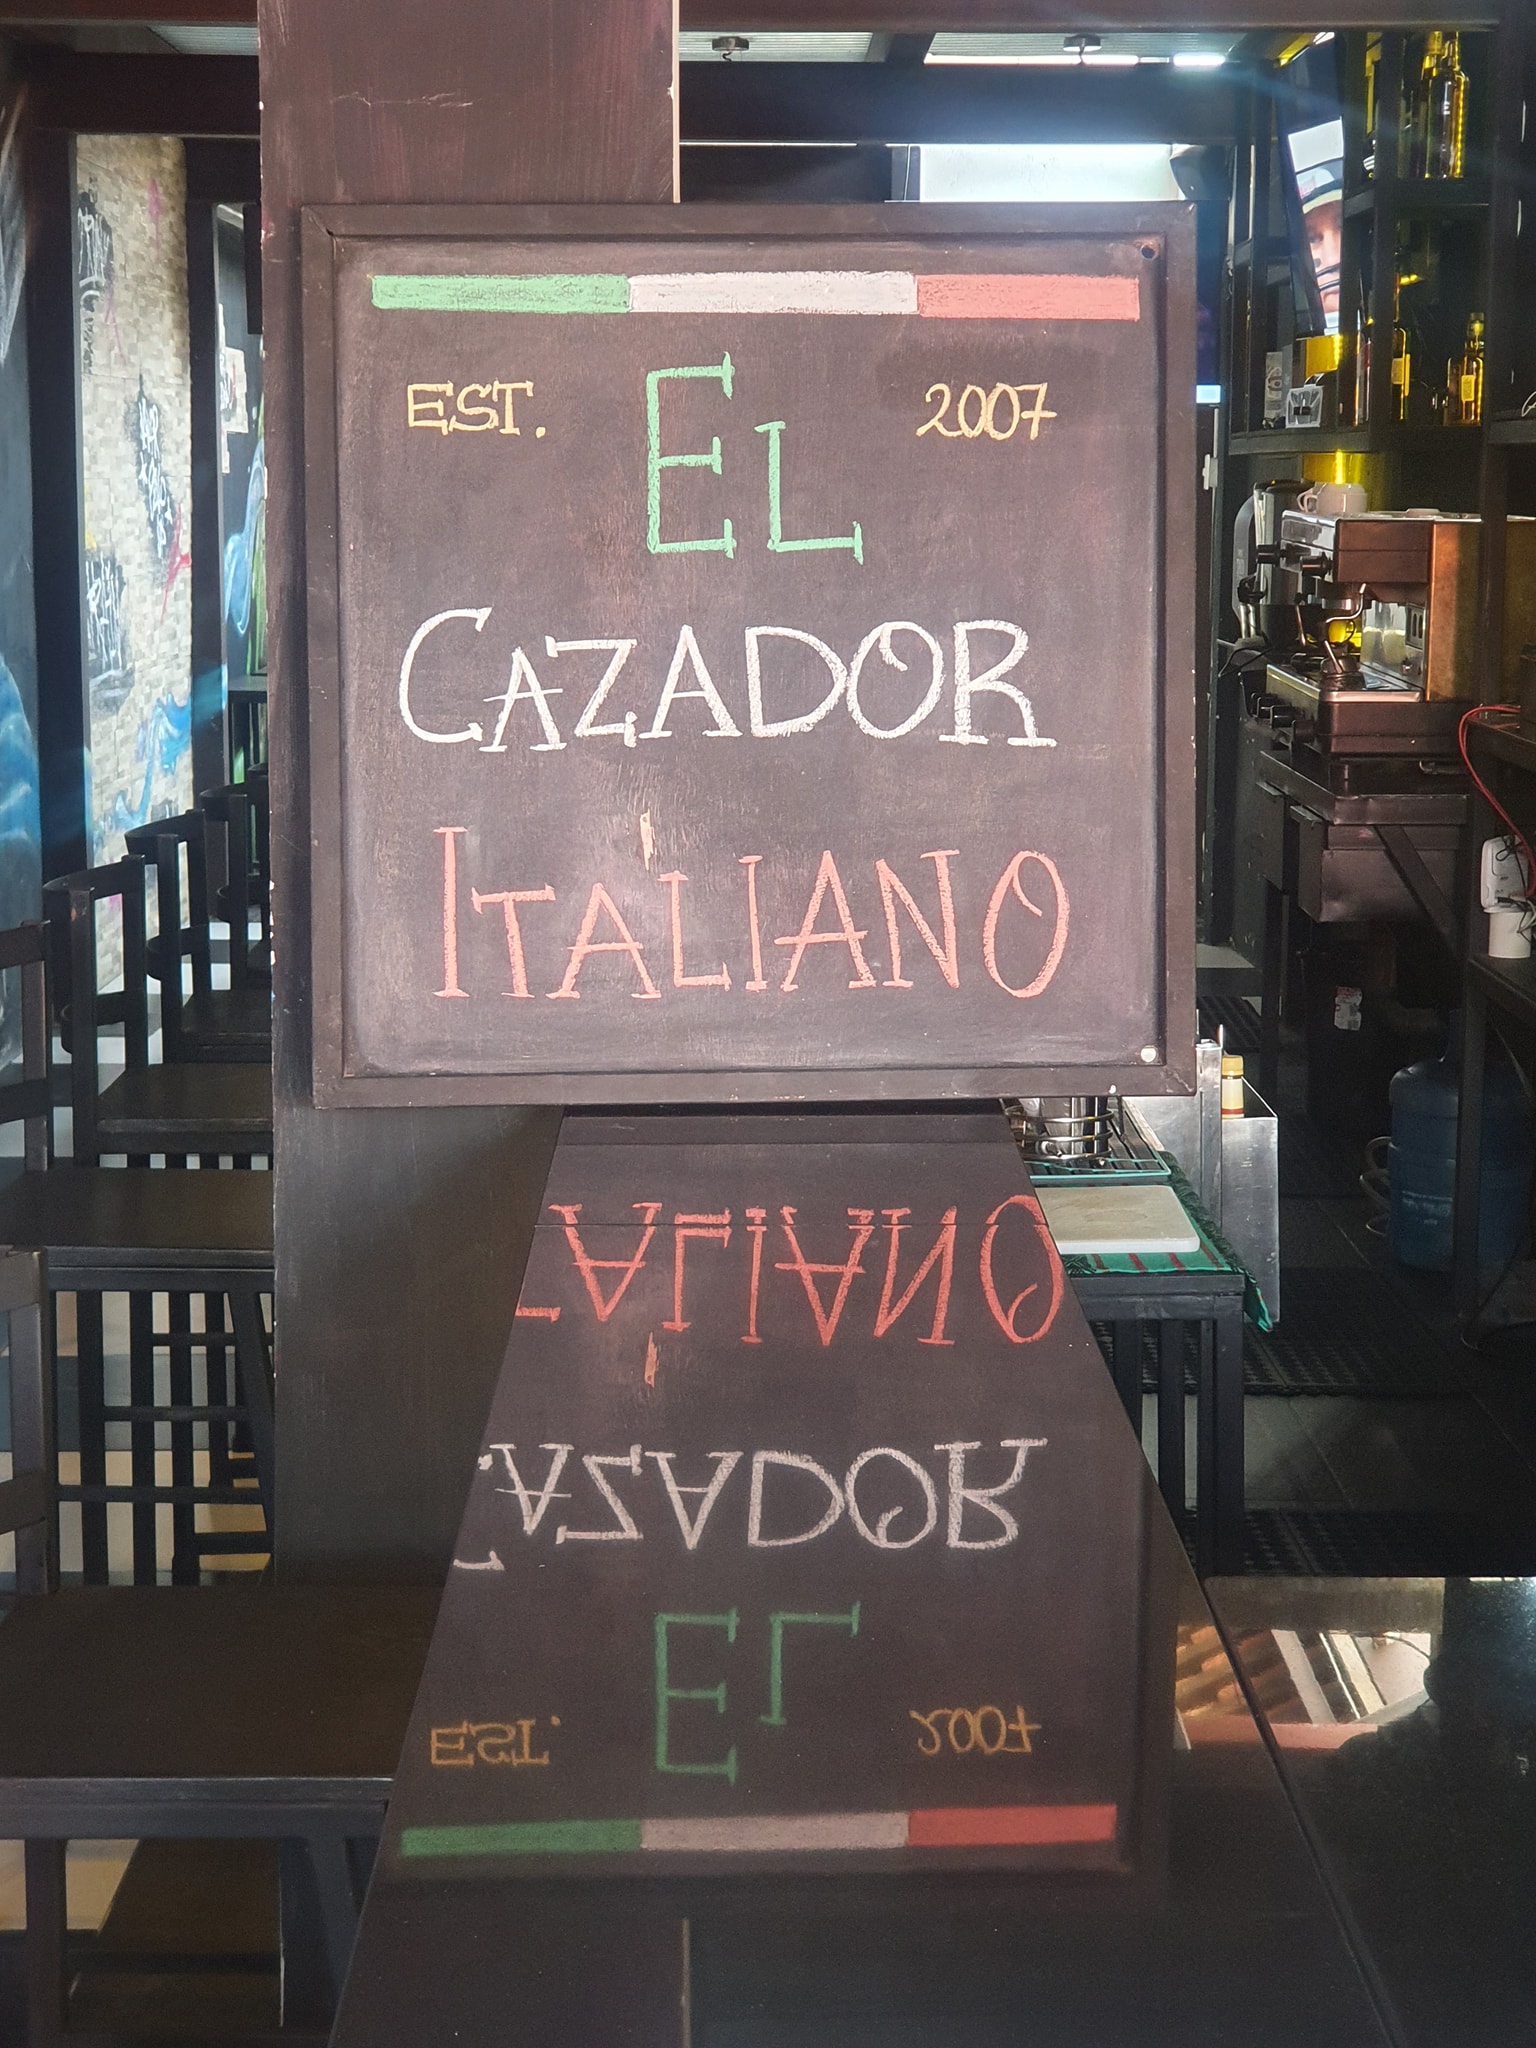 EST. EL 2007
CAZADOR
ITALIANO